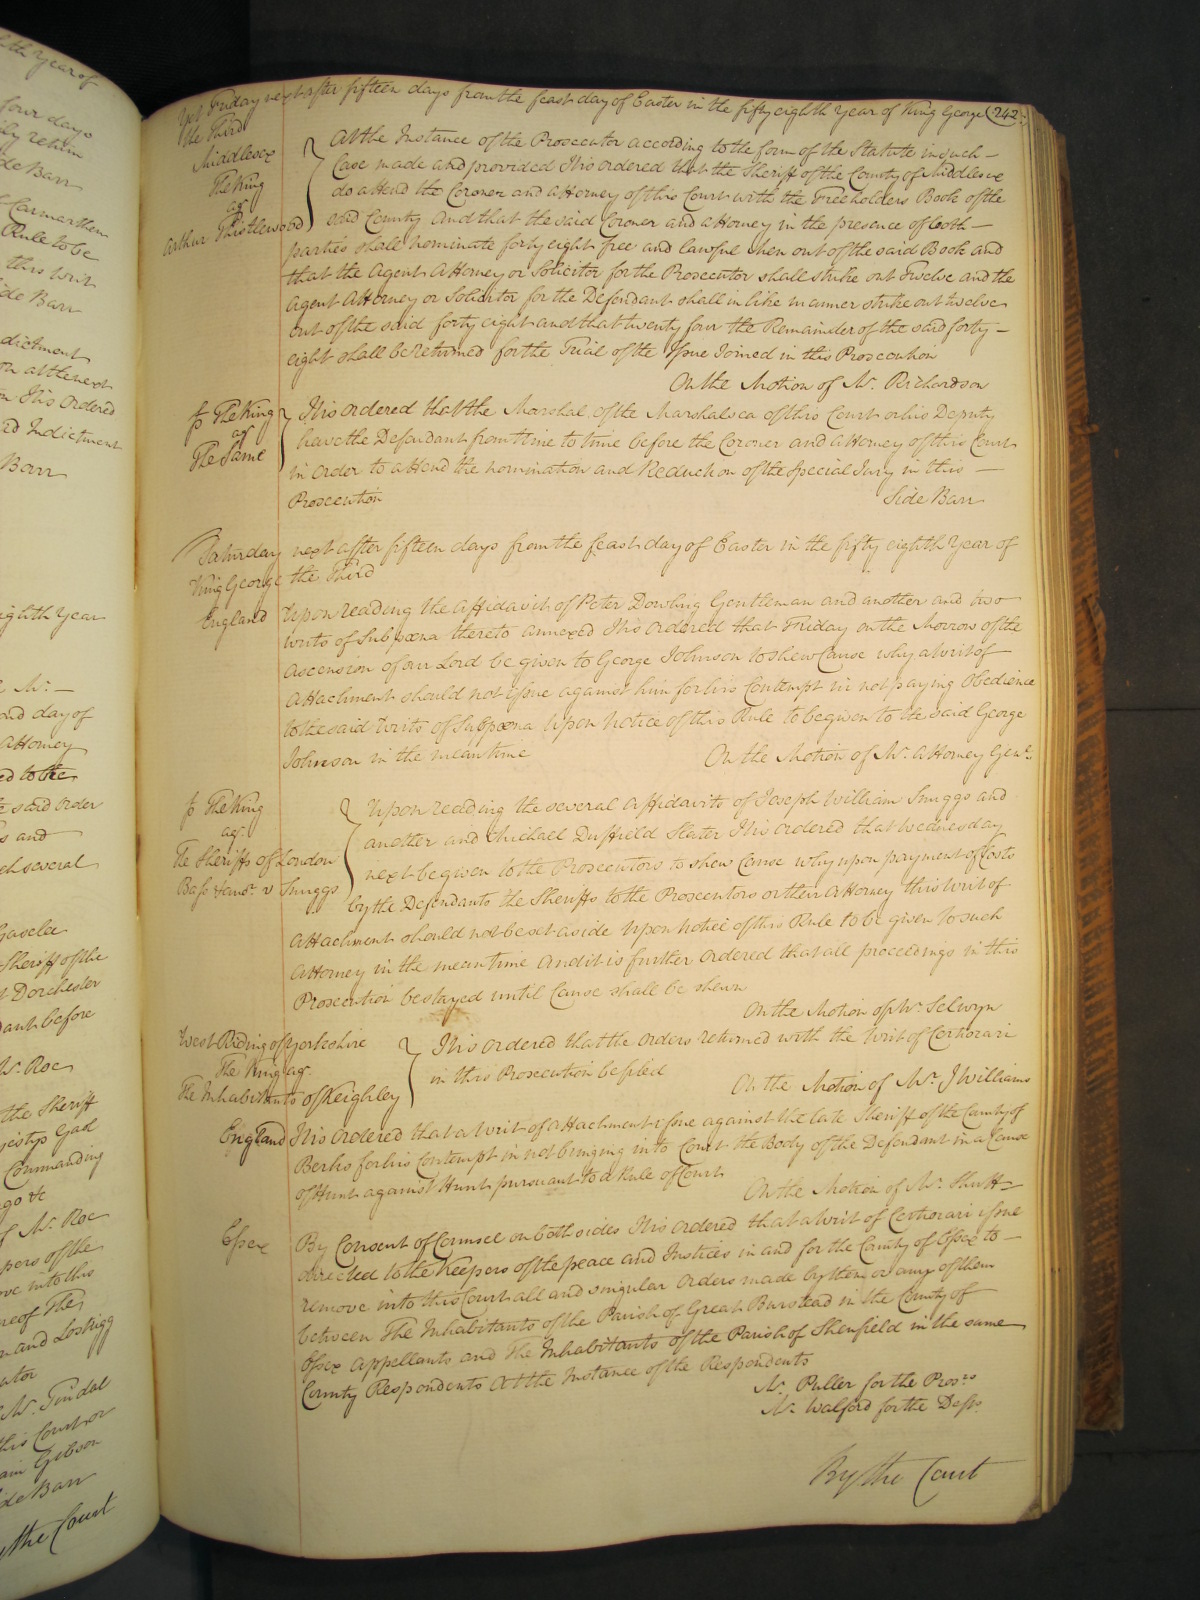 Yet Friday next after fifteen days from the feast day of Easter in the fifty eighth Year of King George 242.
the Third
Middlesex
The King
agt
Arthur Thistlewood
At the Instance of the Prosecutor according to the form of the Statute in such –
Case made and provided It is ordered that the Sheriff of the County of Middlesex
do attend the Coroner and attorney of this Court with the Freeholders Book of the
said County And that the said Coroner and attorney in the presence of both –
parties shall nominate forty eight free and lawful Men out of the said Book and
that the Agent Attorney or Solicitor for the Prosecutor shall strike out Twelve and the
Agent Attorney or Solicitor for the Defendant shall in like manner strike out twelve
out of the said forty eight and that twenty four the Remainder of the said forty –
eight shall be returned for the Trial of the Issue Joined in this Prosecution
On the Motion of Mr. Richardson
The King
agt
The Same
It is ordered that the Marshal of the Marshalsea of this Court or his Deputy
have the Defendant from time to time before the Coroner and attorney of this Court
in order to attend the nomination and Reduction of the Special Jury in this –
Prosecution
Side Barr
Saturday next after fifteen days from the feast day of Easter in the fifty eighth Year of
King George the Third
England
Upon reading the affidavit of Peter Dowling Gentleman and another and two
writs of Subpœna thereto annexed It is ordered that Friday on the Morrow of the
Ascension of our Lord be given to George Johnson to shew Cause why a writ of
Attachment should not issue against him for his Contempt in not paying Obedience
to the said Writs of Subpœna Upon Notice of this Rule to be given to the said George
Johnson in the mean time
On the Motion of Mr. Attorney Genl.
The King
agt
The Sheriffs of London
v Snuggs
Upon reading the several affidavits of Joseph William Snuggs and
another and Michael Duffield Slater It is ordered that Wednesday
next be given to the Prosecutors to shew Cause why upon payment of Costs
by the Defendants the Sheriffs to the Prosecutors or their Attorney this Writ of
Attachment should not be set aside Upon Notice of this Rule to be given to such
Attorney in the mean time And it is further Ordered that all proceedings in this
Prosecution be stayed until Cause shall be shewn
On the Motion of Mr. Selwyn
West Riding of Yorkshire
The King agt
The Inhabitants of Keighley
It is ordered that the Orders returned with the Writ of Certiorari
in this Prosecution be filed
On the Motion of Mr. J Williams
England
It is ordered that a Writ of Attachment issue against the late Sheriff of the County of
Berks for his Contempt in not bringing into Court the Body of the Defendant in a Cause
of Hunt against Hunt pursuant to a Rule of Court
On the Motion of Mr. Shutt
Essex
By Consent of Counsel on both sides It is ordered that a Writ of Certiorari issue
directed to the Keepers of the peace and Justices in and for the County of Essex to –
remove into this Court all and singular Orders made by them or any of them
between The Inhabitants of the Parish of Great Burstead in the County of
Essex Appellants and The Inhabitants of the Parish of Shenfield in the same
County Respondents At the Instance of the Respondents
Mr. Puller for the Prosrs
Mr. Walford for the Defts.
By the Court